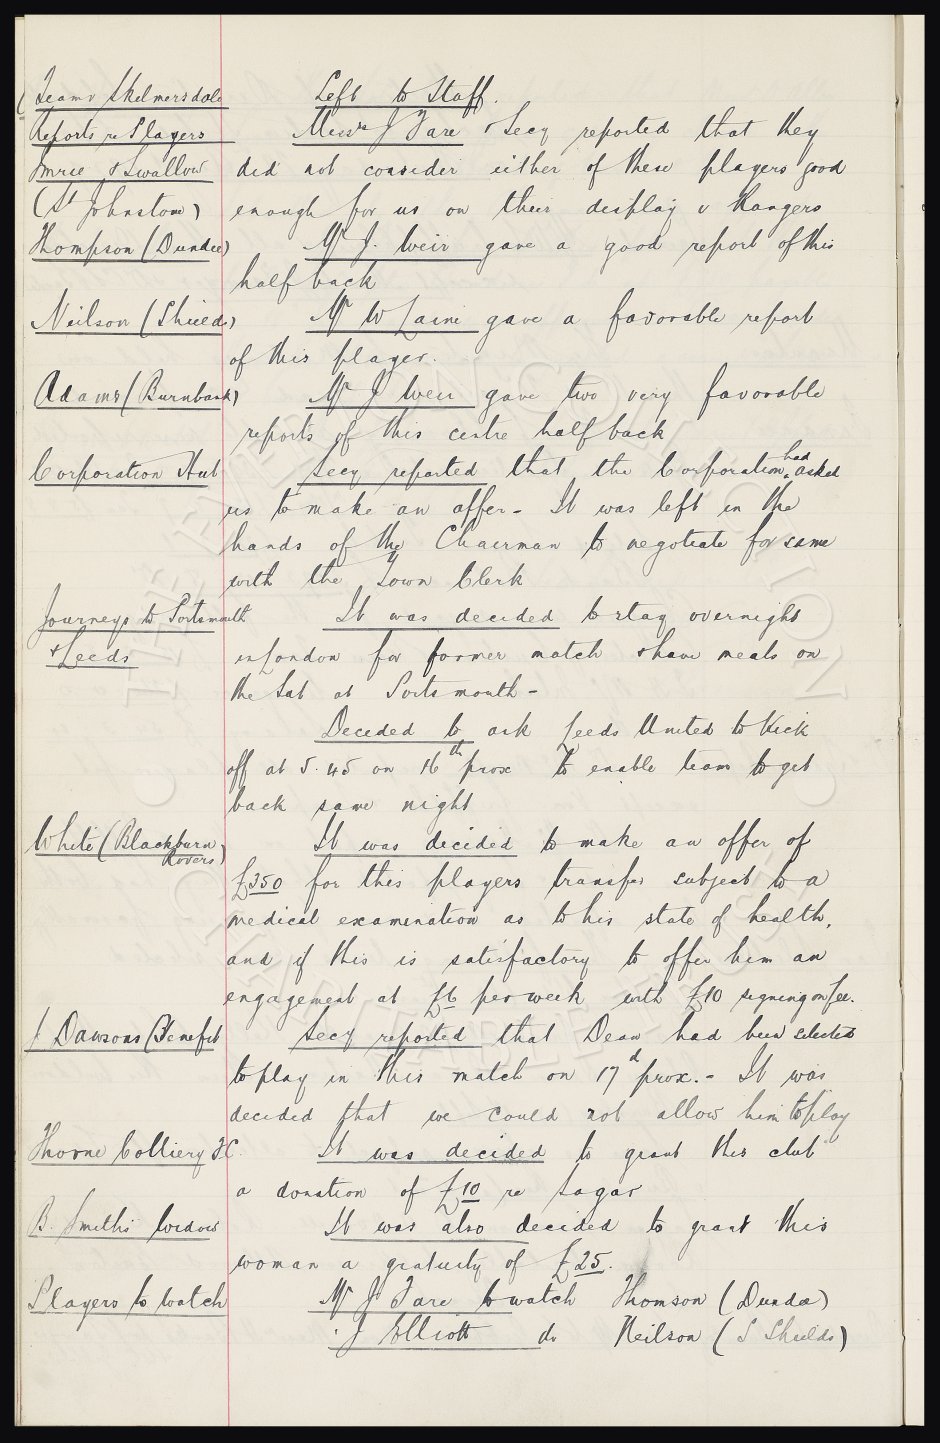 Team v Skelmersdale Left to Staff.
Reports re Players Messrs J Fare & Secy reported that they
Imrie & Swallow did not consider either of these players good
(St Johnstone) enough for us on their display v Rangers
Thompson (Dundee) Mr J. Weir gave a good report of this
half back
Neilson (Shields) Mr W Laini gave a favorable report
of this player.
Adams (Burnbank) Mr J Weir gave two very favorable
reports of this centre half back
Corporation Hut Secy reported that the Corporation had asked
us to make an offer - It was left in the
hands of the Chairman to negotiate for same
with the Town Clerk
Journeys to Portsmouth It was decided to stay overnight
& Leeds in London for former match & have meals on
the Sat at Portsmouth -
Decided to ask Leeds United to Kick
off at 5.45 on 16th prox to enable team to get
back same night
White (Blackburn Rovers) It was decided to make an offer of
£350 for this players transfer subject to a
medical examination as to his state of health,
and if this is satisfactory to offer him an
engagement at £6 per week with £10 signing on fee.
J Dawsons Benefit Secy reported that Dean had been selected
to play in this match on 17th prox. - It was
decided that we could not allow him to play
Thorne Colliery FC. It was decided to grant this club
a donation of £10 re Sagar
B. Smiths Widow It was also decided to grant this
woman a gratuity of £25.
Players to watch Mr J Fare to watch Thomson (Dundee)
" J Elliott do Neilson (S Shields)